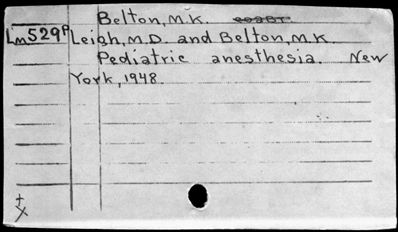 Belton, M.K.
Lm529P Leigh, M.D. and Belton, M.K.
Pediatric anesthesia. New
York, 1948